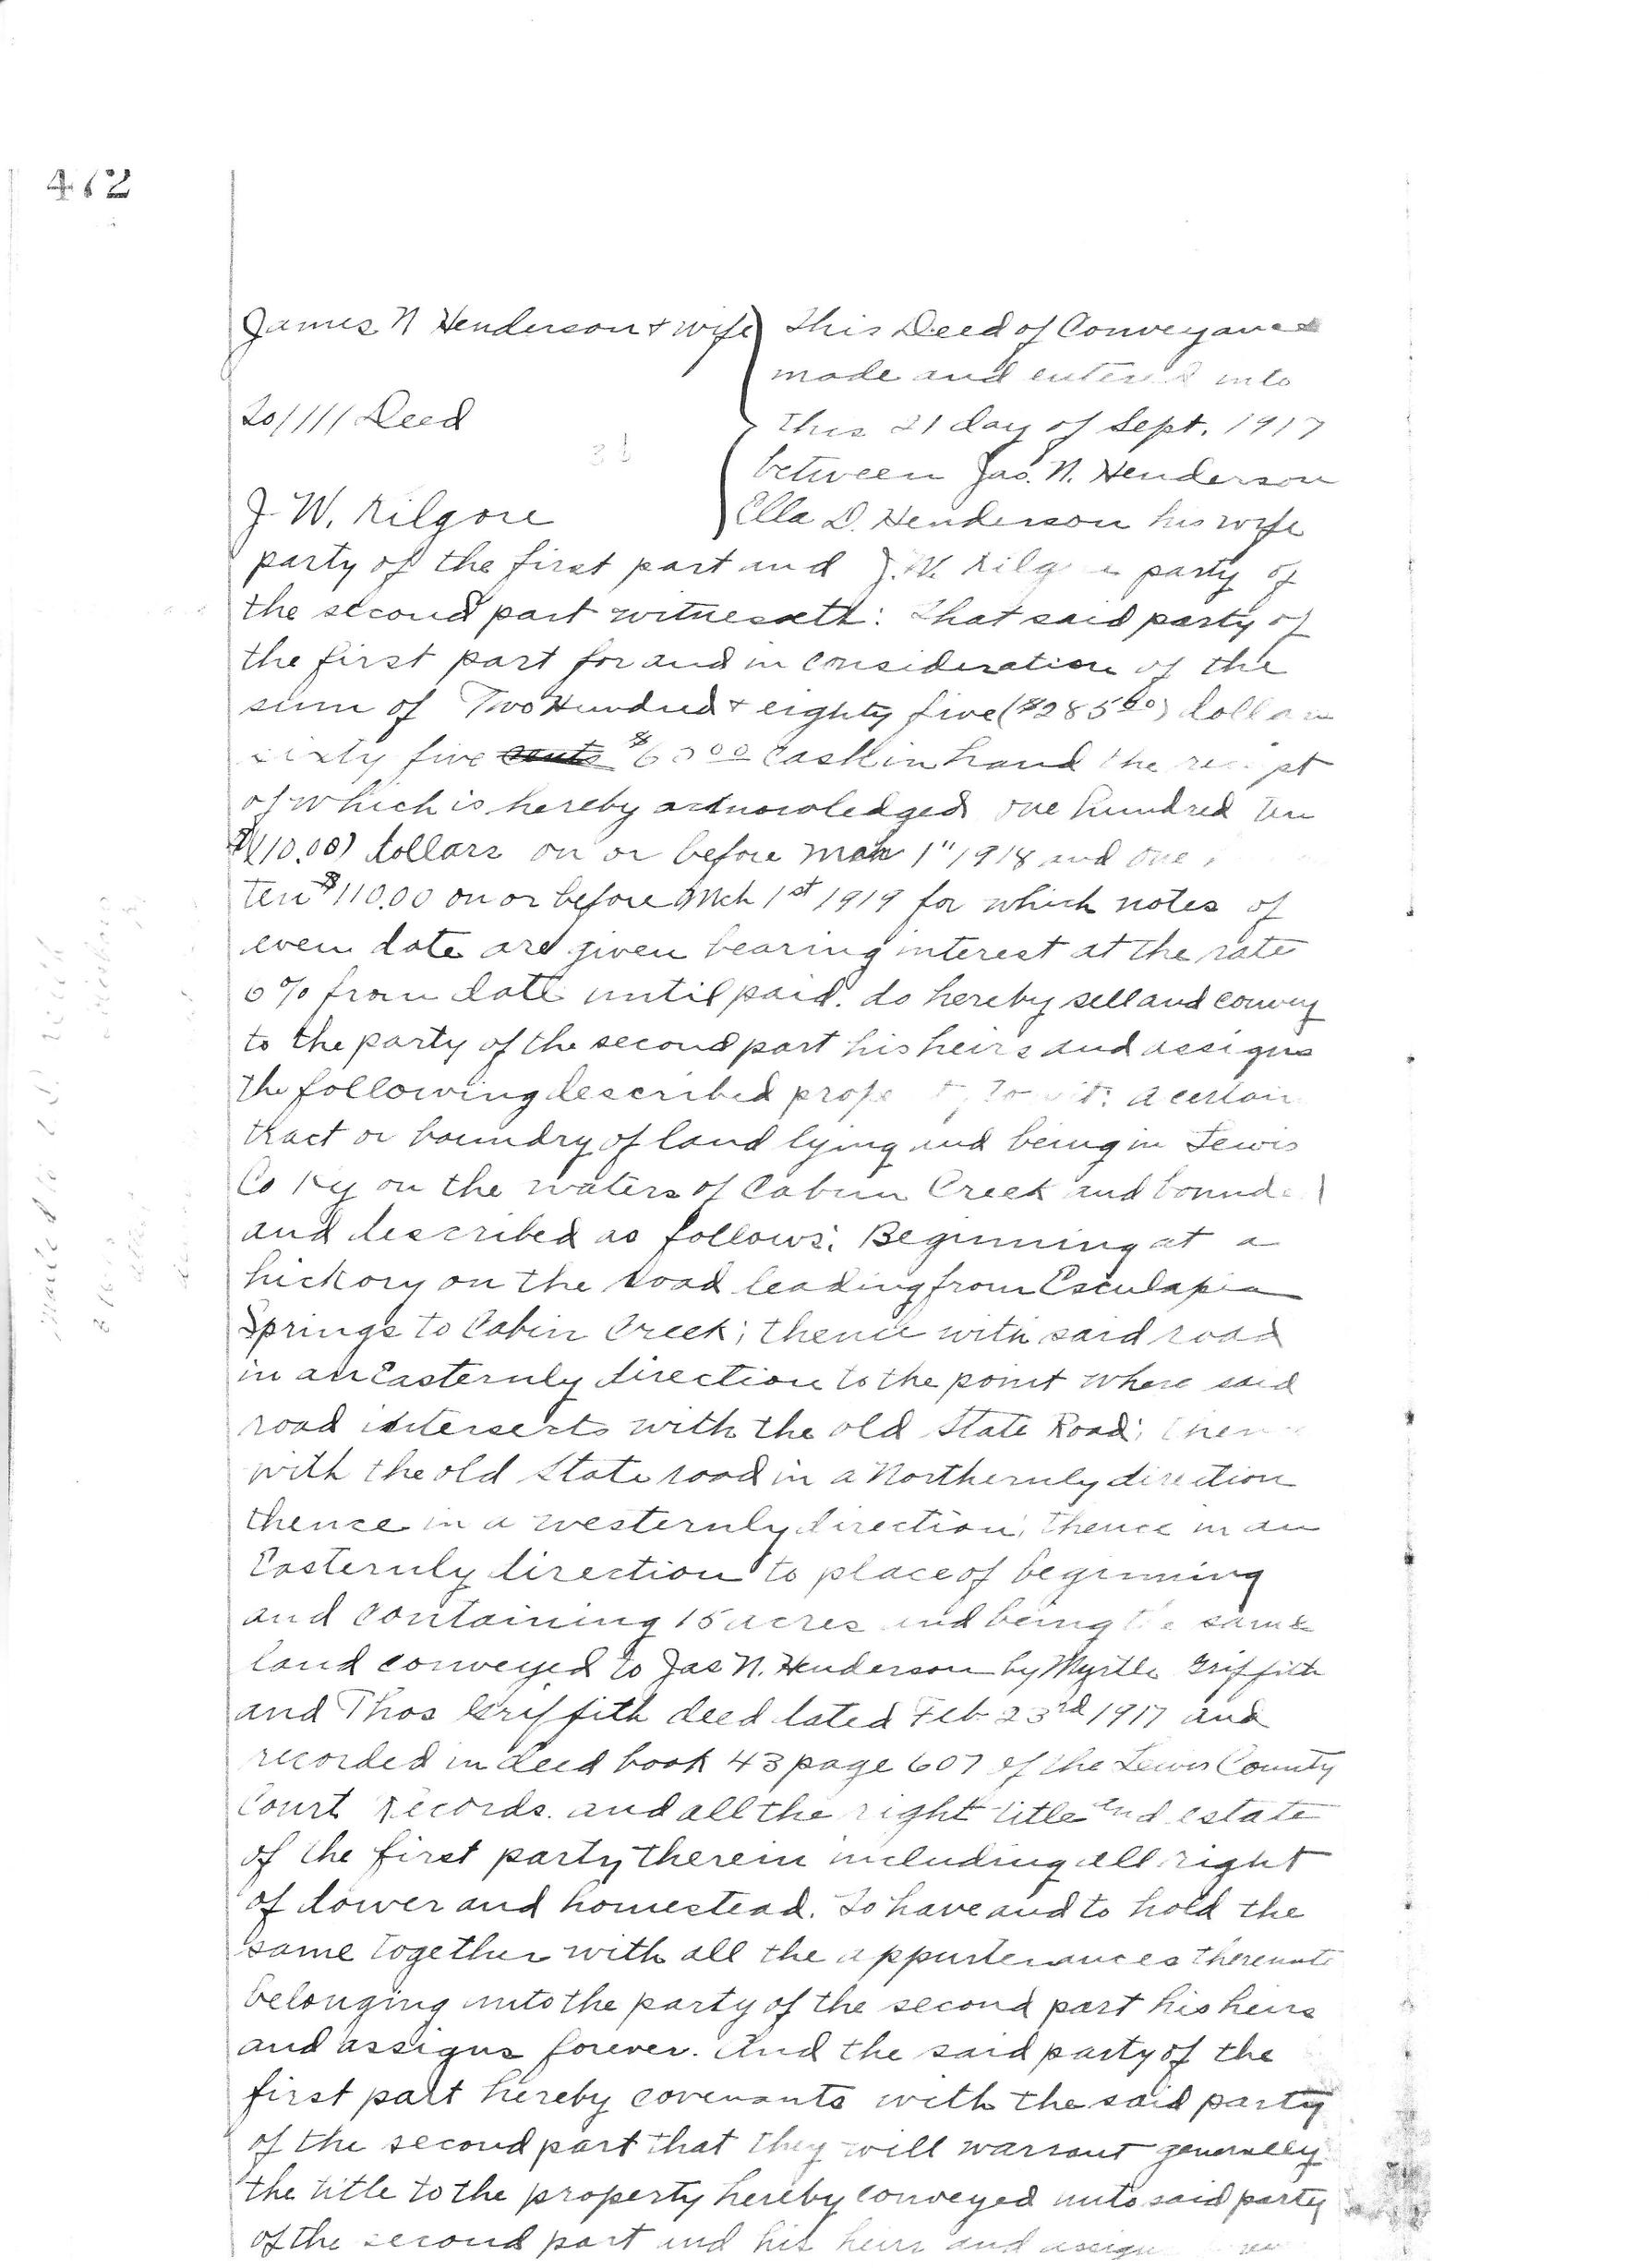 462
James N Henderson & wife
To /// Deed
J. W. Kilgore
This Deed of Conveyance
made and entered into
this 21 day of Sept. 1917
between Jas. N. Henderson
Ella D. Henderson his wife
party of the first part and J. W. Kilgore party of
the second part witnesseth: That said party of
the first part for and in consideration of the
sum of Two Hundred & eighty five ($285 00) dollars
sixty five cents $ cash in hand the receipt
of which is hereby acknowledged one hundred ten
$110.00) dollars on or before Mch 1" 1918 and one
ten $110.00 on or before Mch 1st 1919 for which notes of
even date are given bearing interest at the rate
6% from date until paid. do hereby sell and convey
to the party of the second part his heirs and assigns
the following described property, to wit: a certain
tract or boundry of land lying and being in Lewis
Co Ky on the waters of Cabin Creek and bounded
and described as follows: Beginning at a
hickory on the road leading from Esculapia
Springs to Cabin Creek; thence with said road
in an Easternly direction to the point where said
road intersects with the old State Road; thence
with the old State road in a Northernly direction
thence in a westernly direction; thence in an
Easternly direction to place of beginning
and containing 15 acres and being the same
land conveyed to Jas N. Henderson by Myrtle Griffith
and Thos Griffith deed dated Feb 23rd 1917 and
recorded in deed book 43 page 607 of the Lewis County
Court Records. and all the right title and estate
of the first party therein including all right
of dower and homestead. To have and to hold the
same together with all the appurtenances thereunto
belonging unto the party of the second part his heirs
and assigns forever. And the said party of the
first part hereby covenants with the said party
of the second part that they will warrant generally
the title to the property hereby conveyed unto said party
of the second part and his heirs and assigns